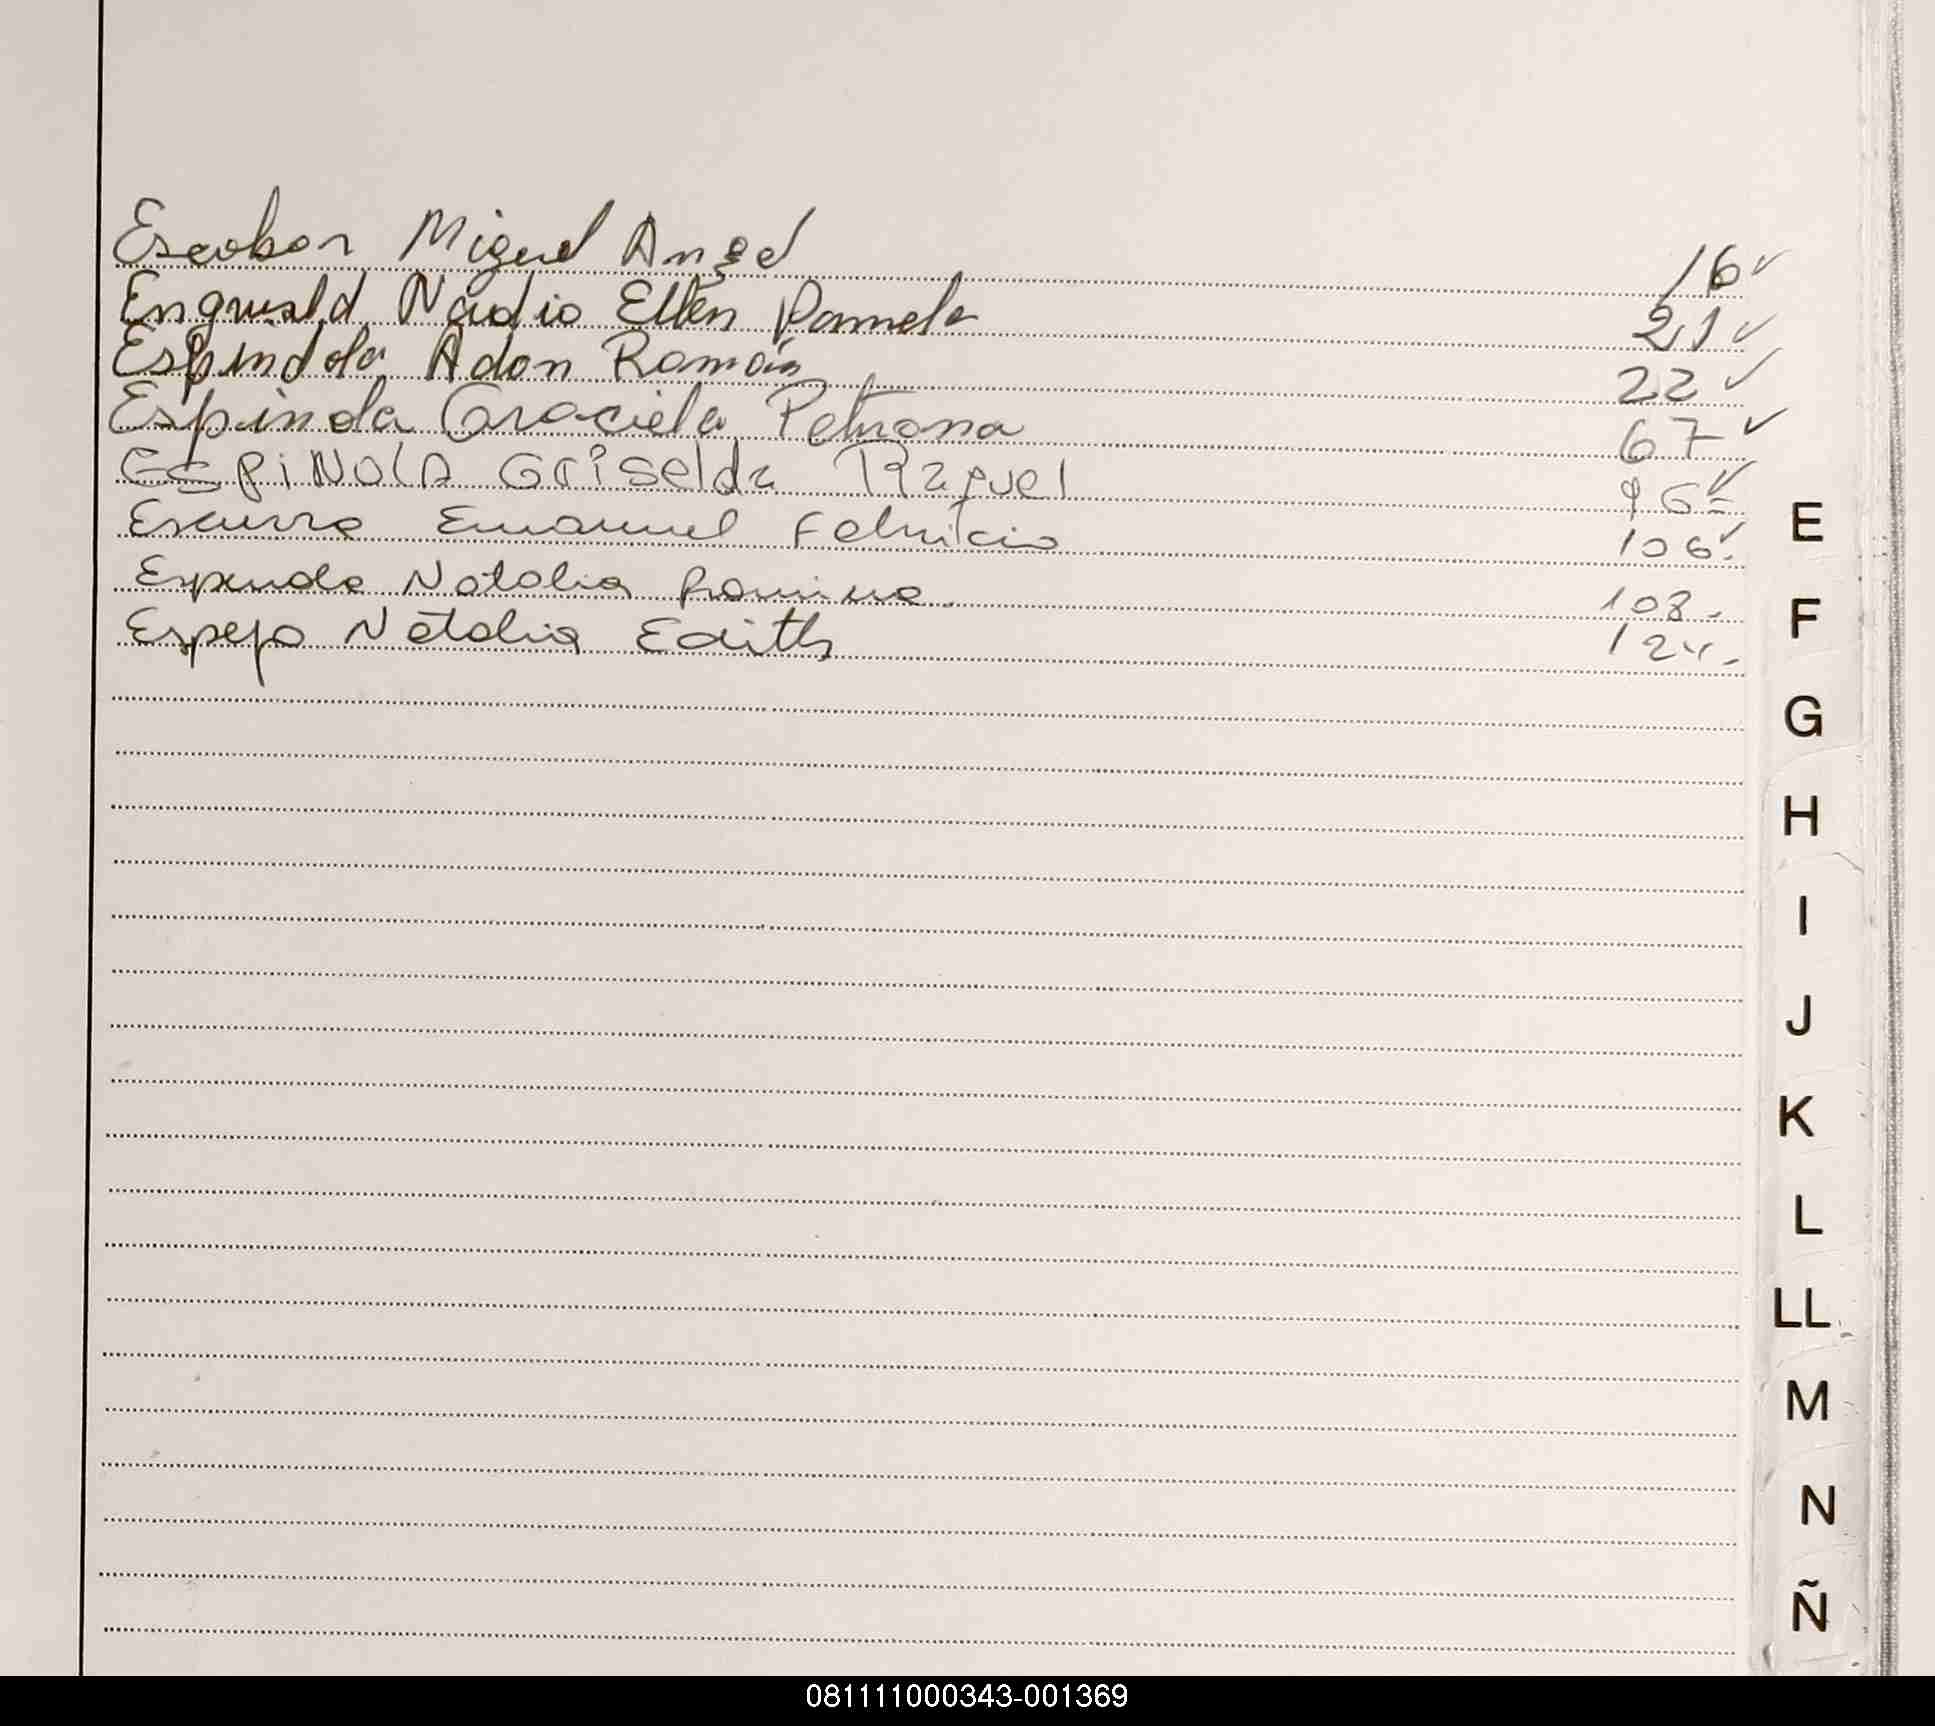 Escobar Miguel Angel 16 ✓
Nadia Ellen Pamela 21 ✓
Espindola Adan Ramón 22 ✓
Espinola Graciela Petrona 67 ✓
ESPINOLA Griselda Raquel 96 ✓
Escurra Emanuel Fabricio 106 ✓
Natalia Romina. 108.-
Espejo Natalia Edith 124.-
E
F
G
H
I
J
K
L
LL
M
N
Ñ
081111000343-001369